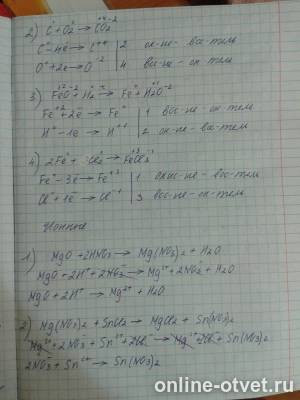 2) C⁰ + O₂⁰ → C⁺⁴O₂⁻²
C⁰ - 4e → C⁺⁴ | 2 ок-ие - вос-тель
O⁰ + 2e → O⁻² | 4 вос-ие - ок-тель
3) Fe⁺²O⁻² + H₂⁰ → Fe⁰ + H₂⁺O⁻²
Fe⁺² + 2e → Fe⁰ | 1 вос-ие - ок-тель
H⁰ - 1e → H⁺¹ | 2 ок-ие - вос-тель
4) 2Fe⁰ + Cl₂⁰ → Fe⁺³Cl₃⁻¹
Fe⁰ - 3e → Fe⁺³ | 1 окис-ие - вос-тель
Cl⁰ + 1e → Cl⁻¹ | 3 вос-ие - ок-тель
Ионные
1) MgO + 2HNO₃ → Mg(NO₃)₂ + H₂O
MgO + 2H⁺ + 2NO₃⁻ → Mg²⁺ + 2NO₃⁻ + H₂O
MgO + 2H⁺ → Mg²⁺ + H₂O
2) Mg(NO₃)₂ + SnCl₂ → MgCl₂ + Sn(NO₃)₂
Mg²⁺ + 2NO₃⁻ + Sn²⁺ + 2Cl⁻ → Mg²⁺ + 2Cl⁻ + Sn(NO₃)₂
2NO₃⁻ + Sn²⁺ → Sn(NO₃)₂
online-otvet.ru